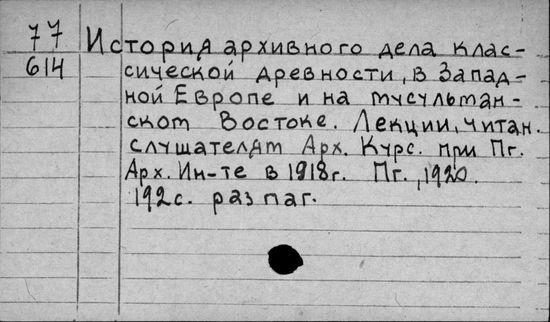 77
614
История архивного дела клас-
сической древности, в Запад-
ной Европе и на мусульман-
ском Востоке. Лекции, читан.
слушателям Арх. Курс. при Пг.
Арх. Ин-те в 1918г. Пг., 1920.
192с. раз паг.